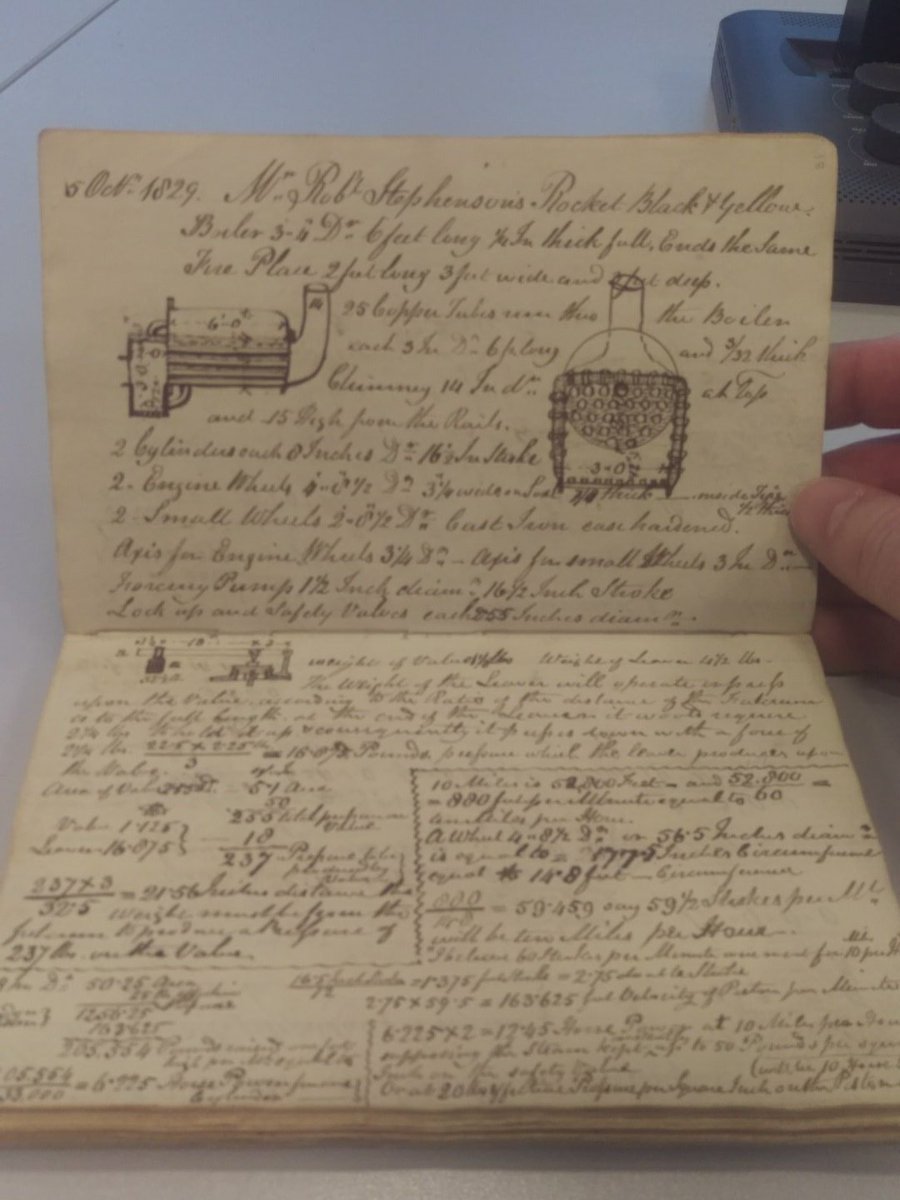 5 Octr. 1829. Mr. Robt Stephenson's Rocket Black & Yellow.
Boiler 3-4 Dr. 6 feet long 1/4 In thick full. Ends the Same
Fire Place 2 feet long 3 feet wide and 3 feet deep.
14
6-0
25 Copper Tubes run thro the Boiler
each 3 In Dr. 6 ft long and 3/32 thick
Chimney 14 In dr. at Top
and 15 High from the Rails.
2 Cylinders each 8 Inches Dr. 16 1/2 In Stroke
3-0
2 - Engine Wheels 4-8 1/2 Dr. 3 3/4 wide on Sole thick inside
1/2 thick
2 - Small Wheels 2-8 1/2 Dr. Cast Iron casehardened.
Axis for Engine Wheels 3 1/4 Dr. - Axis for small Wheels 3 In Dr. -
Forcing Pump 1 1/2 Inch diamr. 16 1/2 Inch Stroke
Lock up and Safety Valves each 2.55 Inches diamr.
weight of Valve Weight of Leaver 4 1/2 lbs.
The Weight of the Leaver will operate
upon the Valve, according to the Ratio of the distance of the Fulcrum
is to the full length, at the end of the Leaver it would require
2 1/4 lbs to hold it up & consequently it presses down with a force of
2 1/4 lbs. 22.5 x 2.25 = 16.875 Pounds, pressure which the leaver produces upon
the Valve. 3
Area of Valve 2.55 = 5.1 Area
50
255 total pressure on
Valve
Valve 1.125
Leaver 16.875
18
237 Pressure
237 x 3 = 21.56 Inches distance the
32.5 weight must be from the
fulcrum to produce a Pressure of
237 lbs. on the Valve.
10 Miles is 52,800 Feet - and 52.800 =
= 880 feet per Minute equal to 60
ten Miles per Hour.
A Wheel 4-8 1/2 Dr. or 56.5 Inches diamr.
is equal to = 177.5 Inches Circumference
equal to 14.8 feet - Circumference
880 = 59.459 say 59 1/2 Strokes per Mt.
14.8 will be ten Miles per Hour.
I believe 60 Strokes per Minute
8 In Dr. 50.25 Area
16.5 = 1.375 feet Stroke = 2.75 double Stroke
12
2.75 x 59.5 = 163.625 feet Velocity of Piston per Minute
1256.25
163.625
205.554 Pounds raised one foot
205.554 = 6.225 Horse Power
33.000 Cylinder
6.225 x 2 = 12.45 Horse Power at 10 Miles per Hour
supposing the Steam kept up to 50 Pounds per square
Inch on the safety Valve